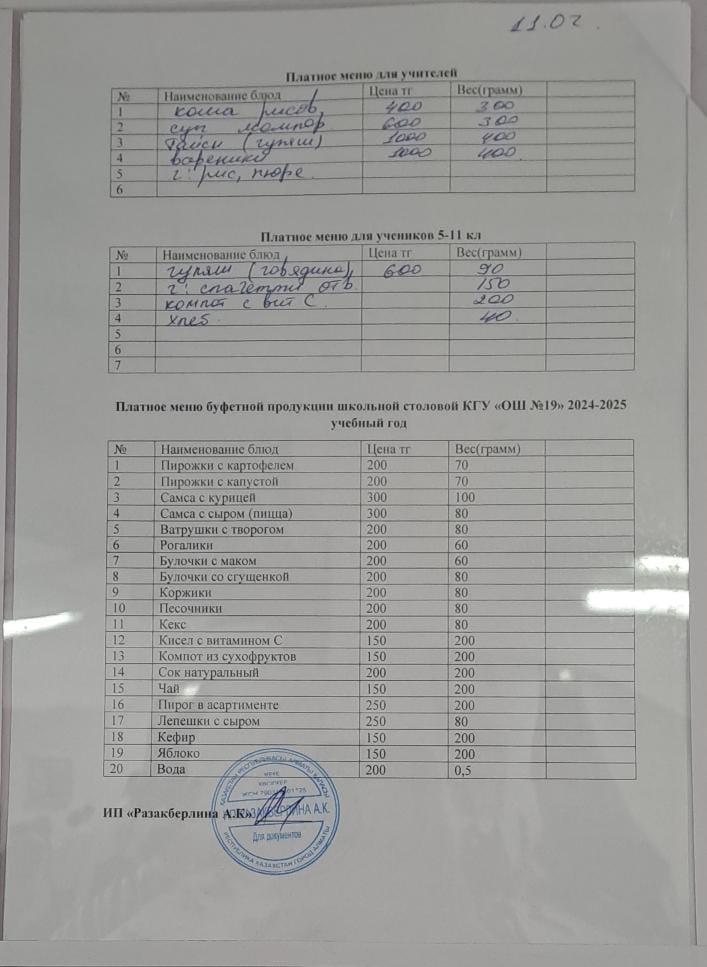 11.02.
Платное меню для учителей
№ Наименование блюд Цена тг Вес(грамм)
1 каша рисов, 400 300
2 суп 600 300
3 (гуляш) 1000 400
4 вареники 1000 400
5 г: рис, пюре.
6
Платное меню для учеников 5-11 кл
№ Наименование блюд Цена тг Вес(грамм)
1 гуляш (говядина), 600 90
2 г: спагетти отв. 150
3 компот с вит С. 200
4 хлеб. 40.
5
6
7
Платное меню буфетной продукции школьной столовой КГУ «ОШ №19» 2024-2025
учебный год
№ Наименование блюд Цена тг Вес(грамм)
1 Пирожки с картофелем 200 70
2 Пирожки с капустой 200 70
3 Самса с курицей 300 100
4 Самса с сыром (пицца) 300 80
5 Ватрушки с творогом 200 80
6 Рогалики 200 60
7 Булочки с маком 200 60
8 Булочки со сгущенкой 200 80
9 Коржики 200 80
10 Песочники 200 80
11 Кекс 200 80
12 Кисел с витамином С 150 200
13 Компот из сухофруктов 150 200
14 Сок натуральный 200 200
15 Чай 150 200
16 Пирог в асартименте 250 200
17 Лепешки с сыром 250 80
18 Кефир 150 200
19 Яблоко 150 200
20 Вода 200 0,5
ИП «Разакберлина А.К»
ҚАЗАҚСТАН РЕСПУБЛИКАСЫ АЛМАТЫ ҚАЛАСЫ
ЖЕКЕ
КӘСІПКЕР
РАЗАКБЕРЛИНА А.К.
Для документов
РЕСПУБЛИКА КАЗАХСТАН ГОРОД АЛМАТЫ